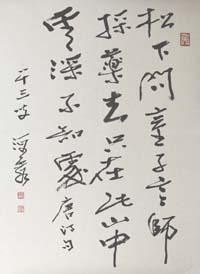 松下問童子言師
採藥去只在此山中
雲深不知處唐詩句